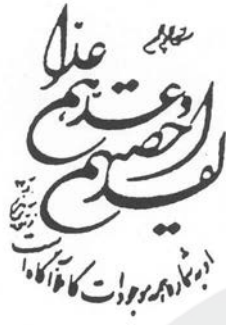 لقد احصیهم
و عدهم عدا
او بشماره همه موجودات کاملا آگاه است